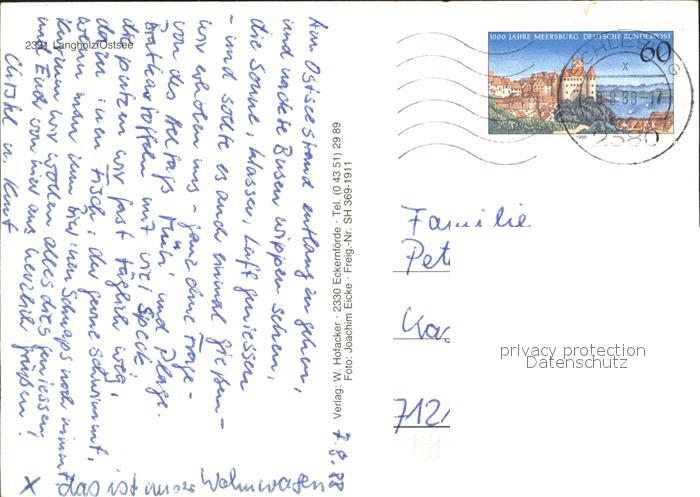 2331 Langholz/Ostsee
7.8.88
Am Ostseestrand entlang zu gehen,
und nackte Busen wippen sehen,
die Sonne, Wasser, Luft geniessen
- und sollte es auch einmal gießen -
wir erholen uns - ganz ohne Frage -
von des Alltags Müh' und Plage.
Bratkartoffeln mit viel Speck,
die putzen wir fast täglich weg,
dazu 'nen Fisch, der gerne schwimmt,
wenn man zum Bier 'nen Schnaps noch nimmt
kurzum wir wollen alles dies geniessen
und Euch von hier aus herzlich grüßen!
u. Kurt
x das ist unser Wohnwagen
Verlag: W. Hofacker · 2330 Eckernförde · Tel. (0 43 51) 29 89
Foto: Joachim Eicke · Freig.-Nr. SH 369-1911
1000 JAHRE MEERSBURG DEUTSCHE BUNDESPOST
60
1988
SCHLESWIG
8.88-17
2380
Familie
Pet
712
privacy protection
Datenschutz